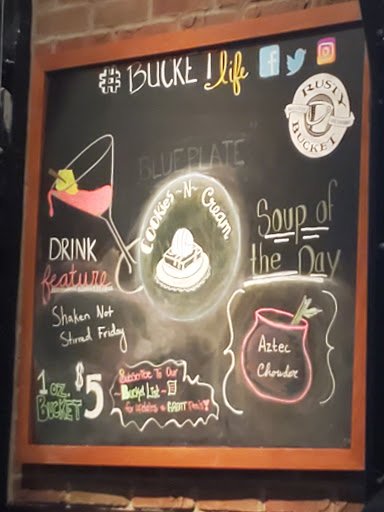 # BUCKET life
RUSTY
BUCKET
BLUE PLATE
Cookies-N-Cream
DRINK
feature
Shaken Not
Stirred Friday
Soup of
the Day
Aztec
Chowder
1 oz.
BUCKET $5
Subscribe To Our
~Bucket List~
for updates & GREAT